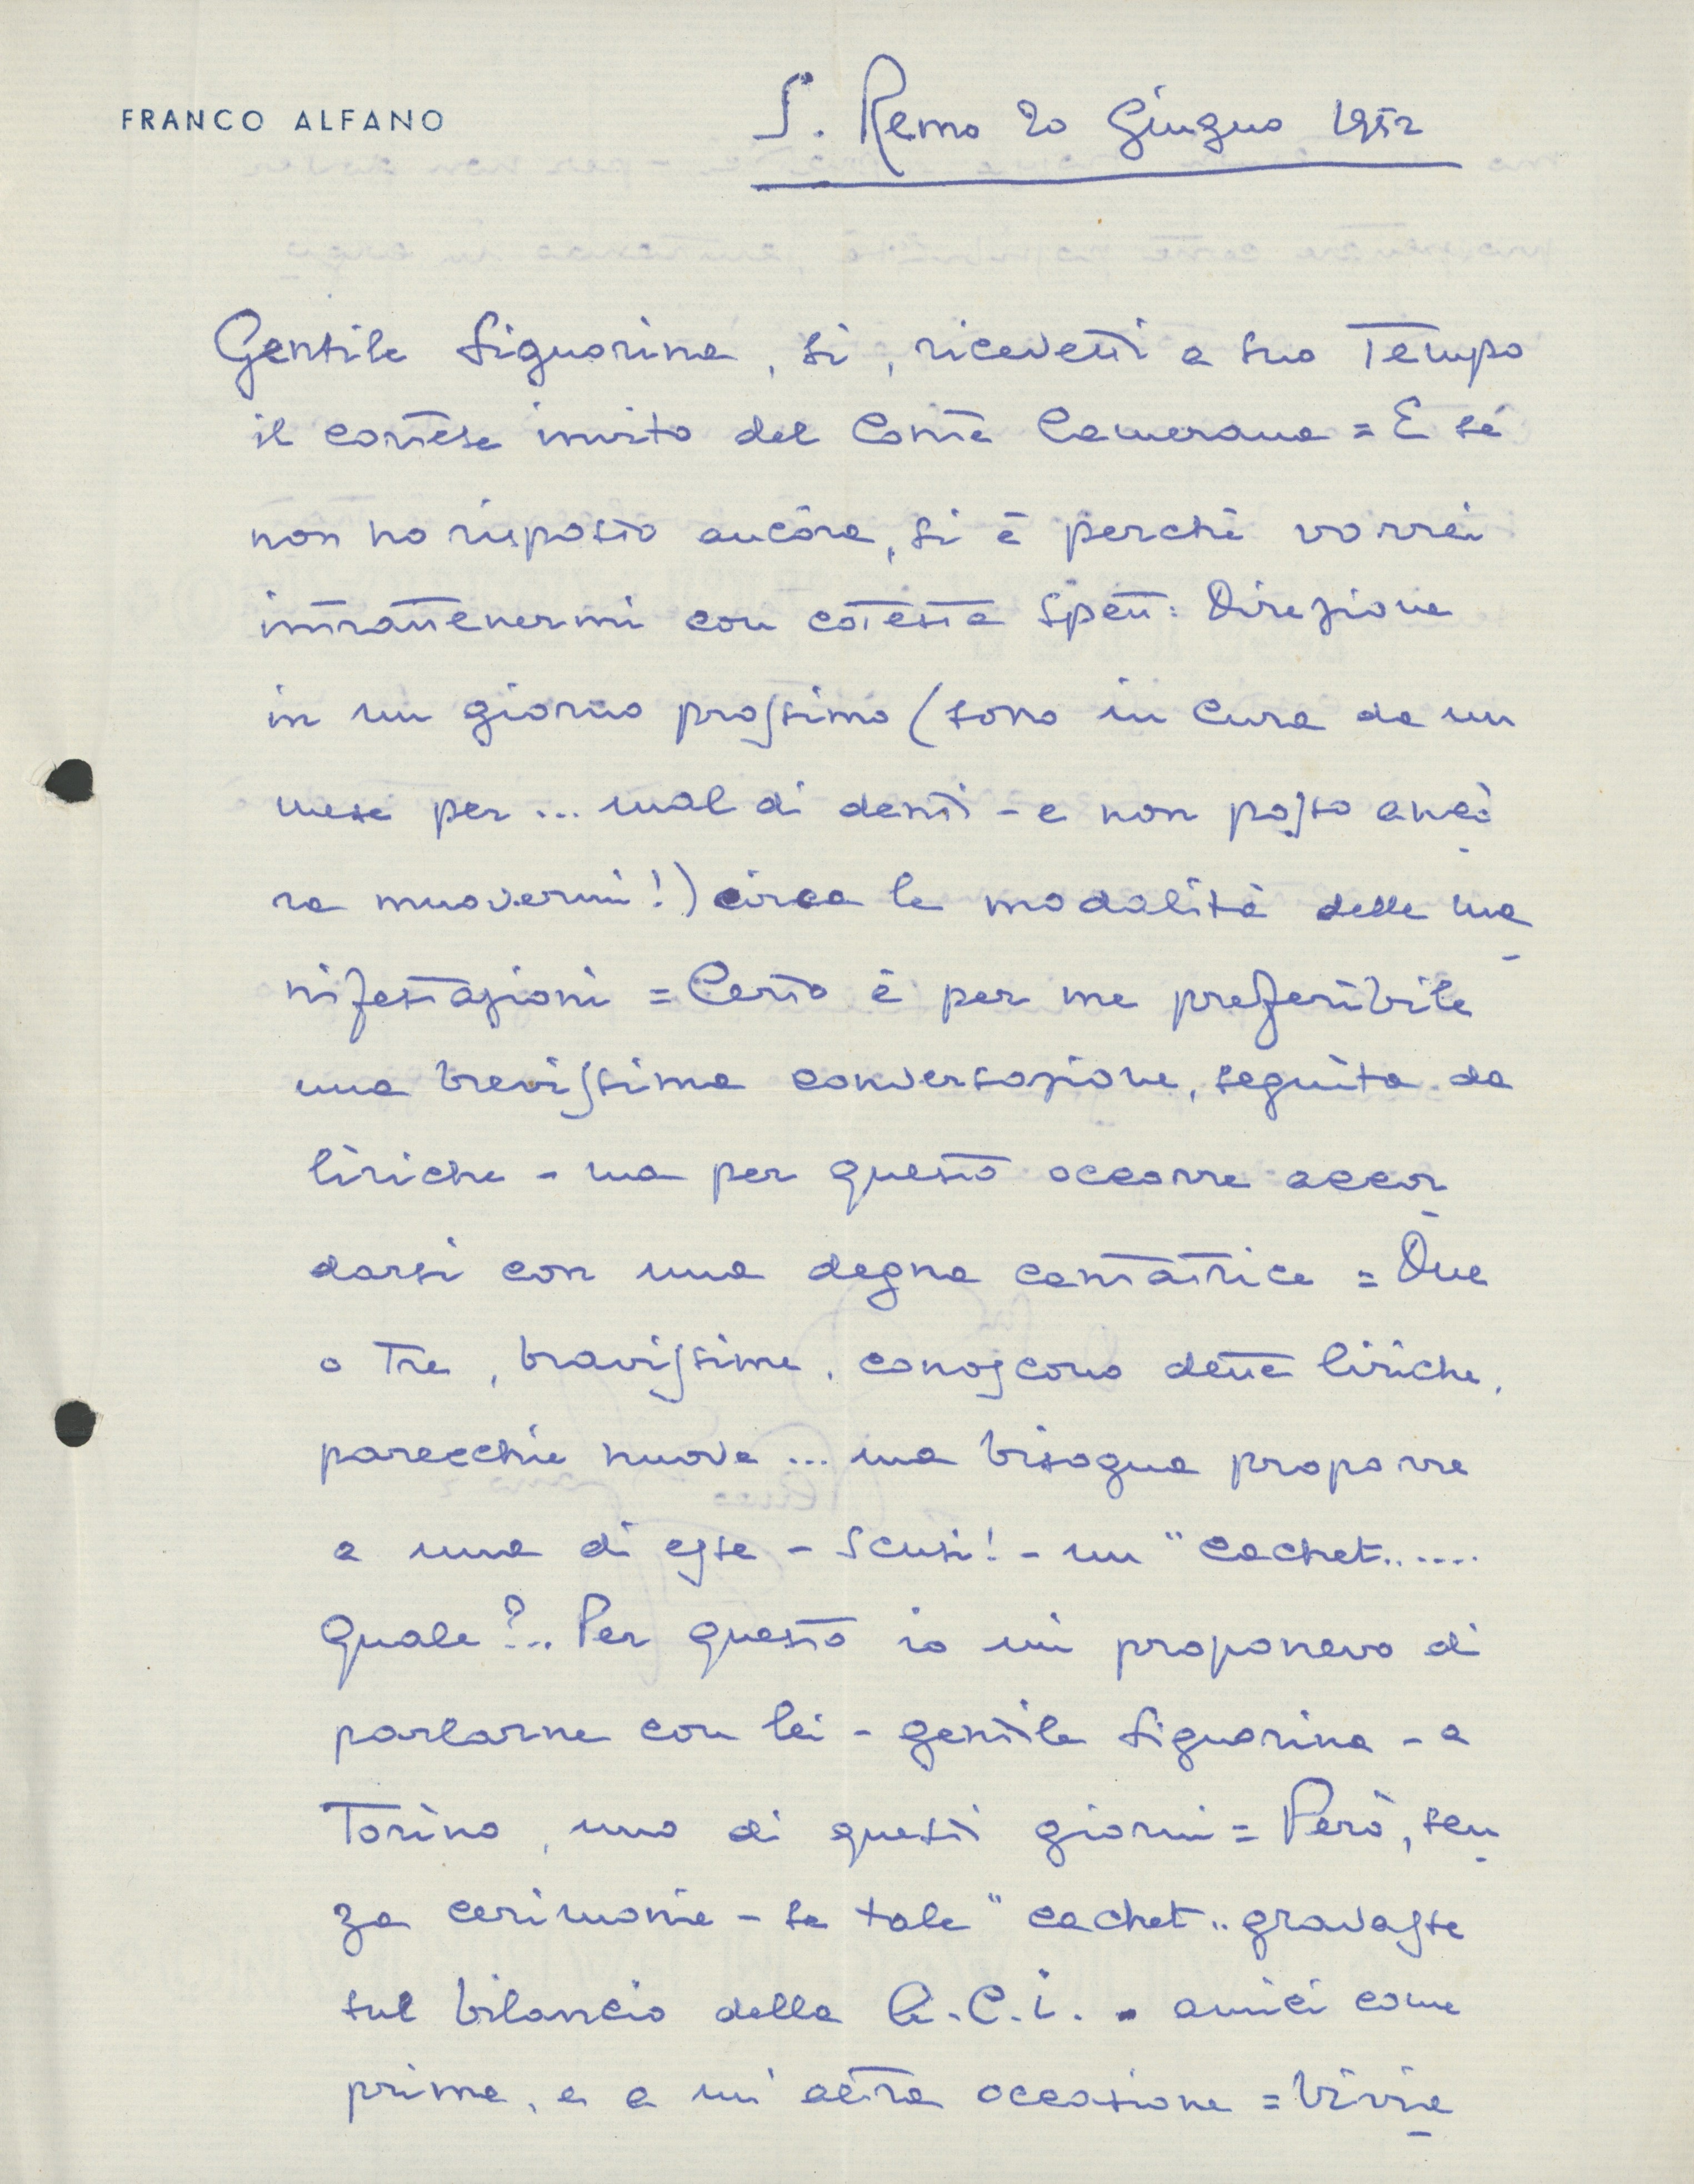 FRANCO ALFANO
S. Remo 20 Giugno 1952
Gentile Signorina, si, ricevetti a suo Tempo
il cortese invito del Conte Camerana = E se
non ho risposto ancóra, si è perchè vorrei
intrattenermi con cotesta Spett: Direzione
in un giorno prossimo (sono in cura da un
mese per ... mal di denti - e non posso ancò
ra muovermi!) circa le modalità delle ma
nifestazioni = Certo è per me preferibile
una brevissima conversazione, seguita da
liriche - ma per questo occorre accor
darsi con una degna cantatrice = Due
o Tre, bravissime, conoscono dette liriche,
parecchie nuove ... ma bisogna proporre
a una di esse - scusi! - un "cachet......
Quale?.. Per questo io mi proponevo di
parlarne con lei - gentile Signorina - a
Torino, uno di questi giorni = Però, sen
za cerimonie - se tale "cachet.. gravasse
sul bilancio della A.C.I. - amici come
prima, e a un'altra occasione = Vivis